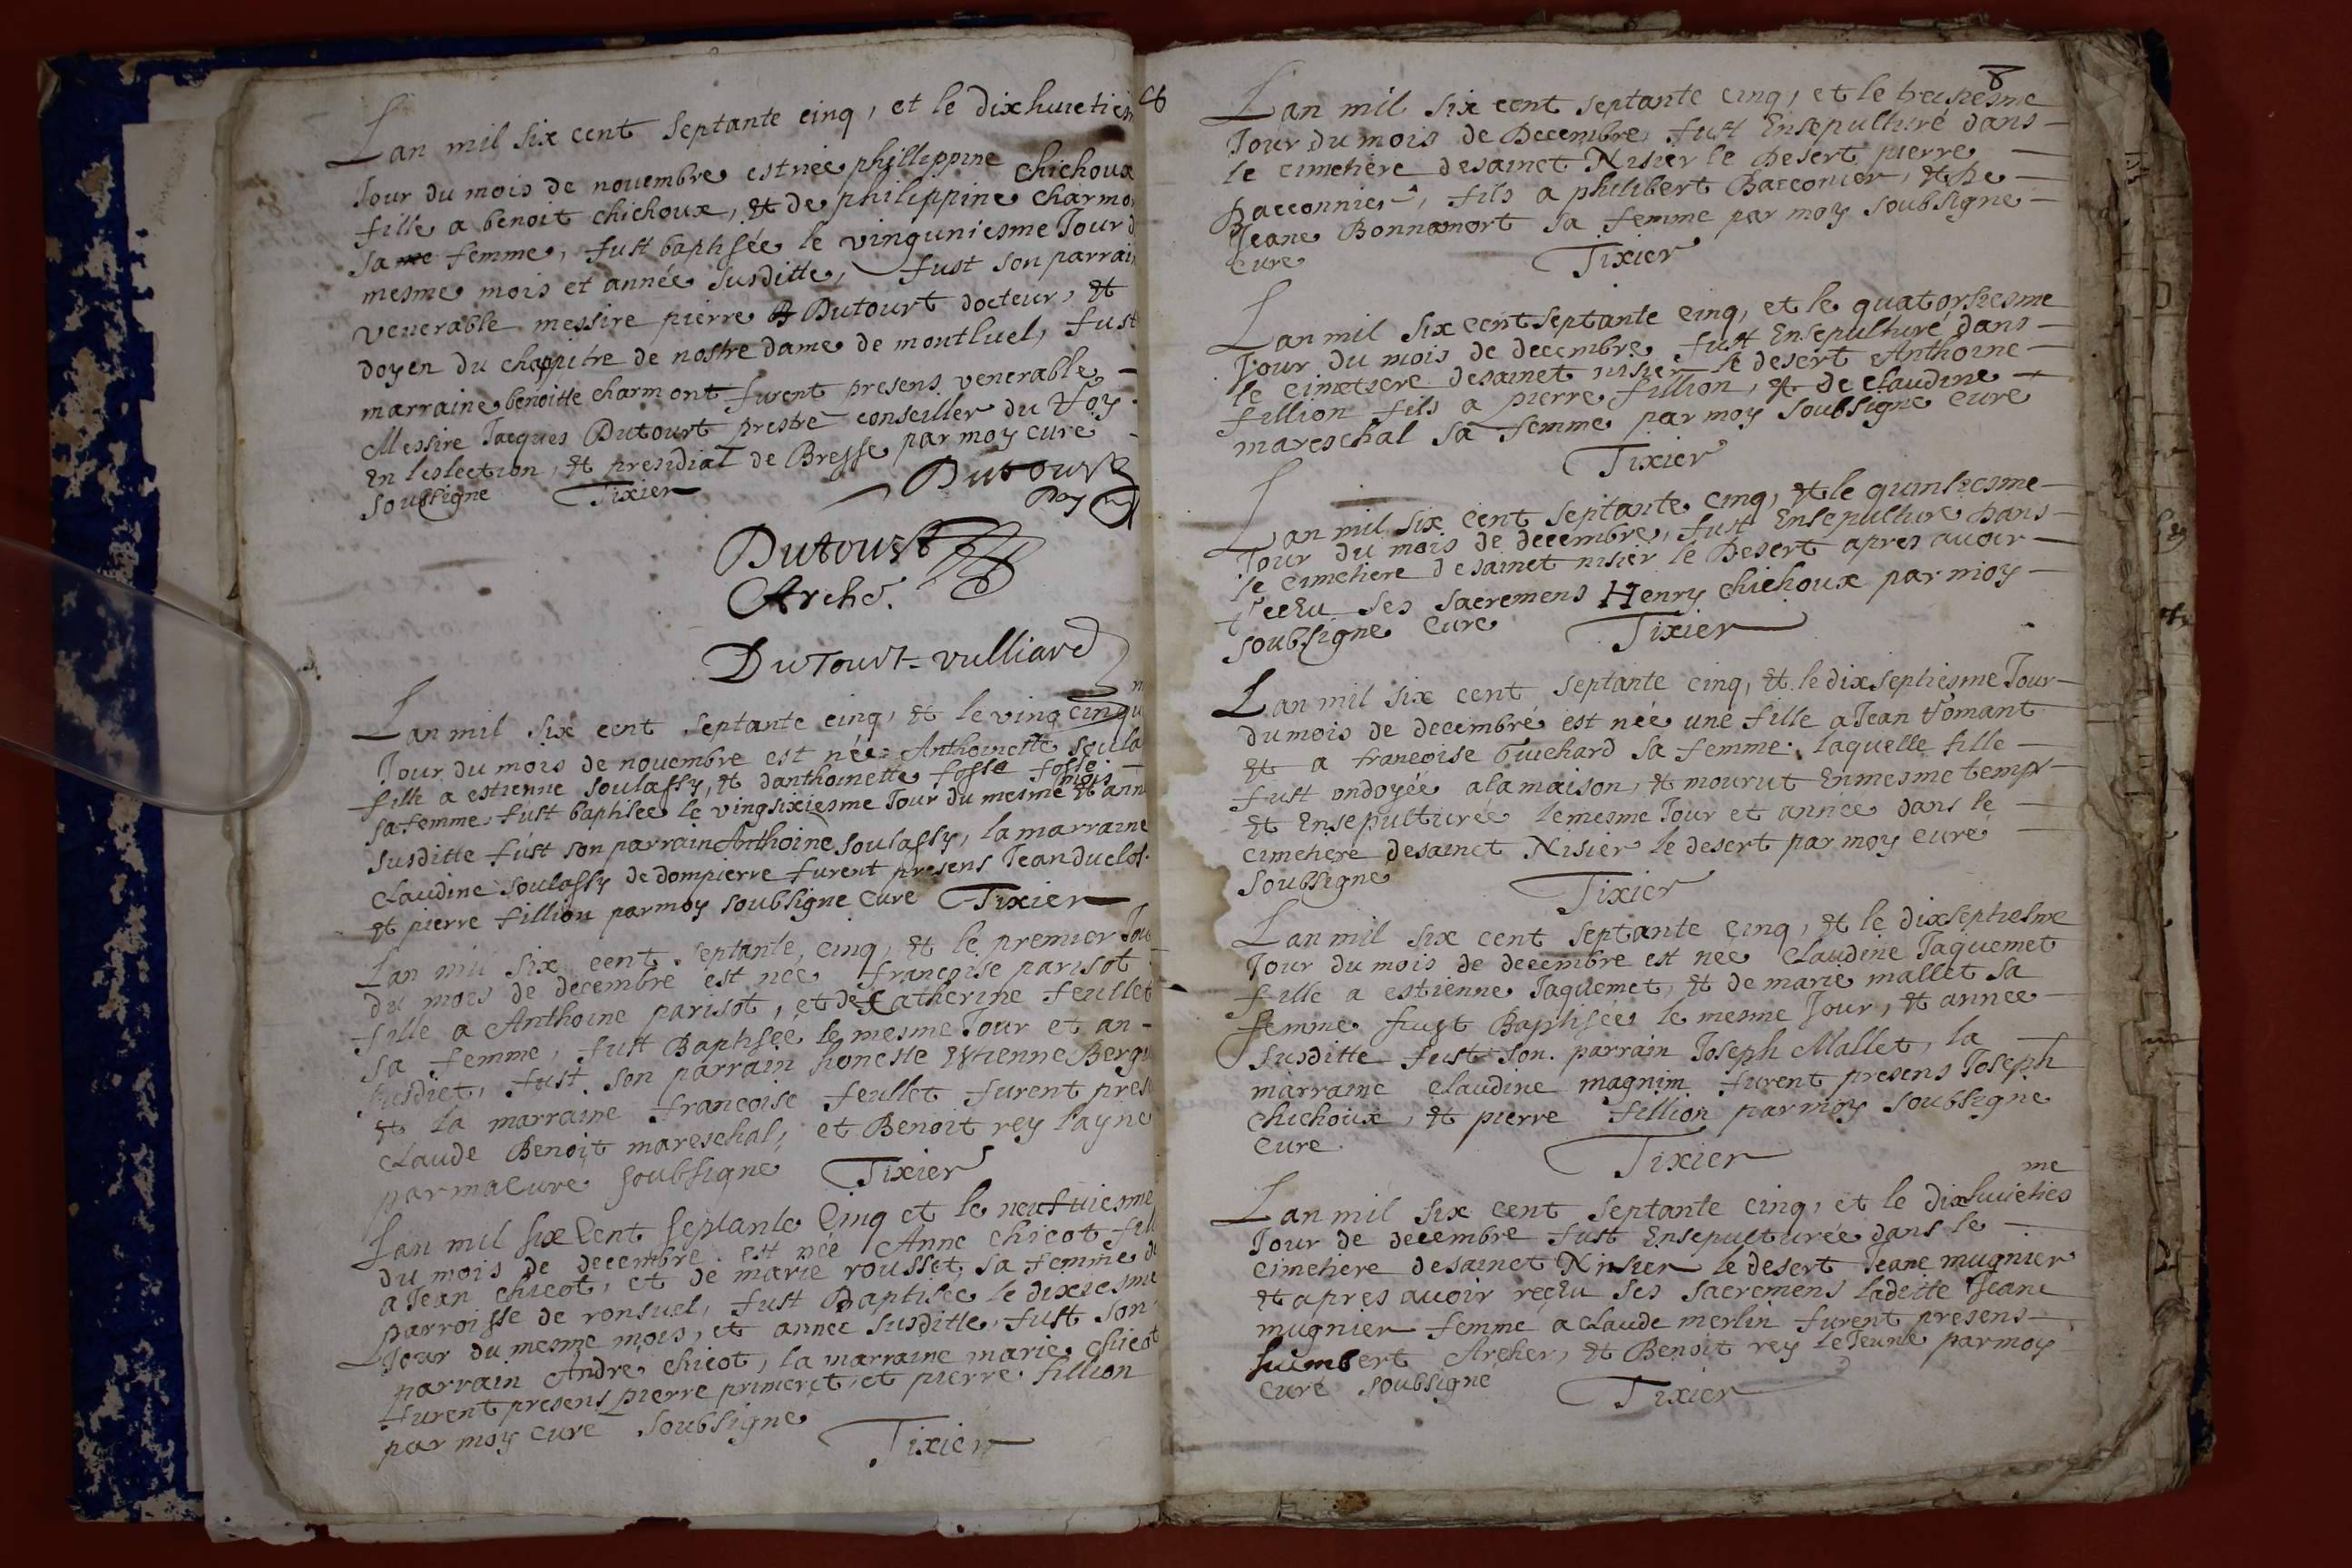 Lan mil six cent septante cinq, et le dixhuictiesm
Jour du mois de nouembre est née phillippine chichoux
fille a benoit chichoux, et de philippine charmo
sa femme, fust baptisée le vinguniesme Jour d
mesme mois et année susditte, fust son parrain
venerable messire pierre Dutourt docteur, et
doyen du chappitre de nostre dame de montluel, fust
marraine benoitte charmont furent presens venerable
Messire Jacques Dutourt prestre conseiller du Roy
En leslection, et presidial de Bresse par moy curé
soubsigne Tixier Dutourt
Doy
Dutourt
Arche.
Dutourt-vulliard
Lan mil six cent septante cinq, et le vingcinqu
Jour du mois de nouembre est née Anthoinette soula
fille a estienne soulassy, et danthoinette fosse fosse
sa femme, fust baptisée le vingsixiesme Jour du mesme mois et ann
susditte fust son parrain Anthoine soulassy, la marraine
Claudine soulassy de dompierre furent presens Jean duclos
et pierre fillion par moy soubsigne curé Tixier
Lan mil six cent septante, cinq, et le premier Jou
du mois de decembre est née françoise parisot
fille a Anthoine parisot, et de Catherine feullet
sa femme, fust Baptisée le mesme Jour et an-
susdict, fust son parrain honeste Estienne Bergi
et la marraine françoise feullet furent pres
claude Benoit mareschal, et Benoit rey layne
par ma cure soubsigné Tixier
Lan mil six Cent septante Cinq et le neufuiesme
du mois de decembre est née Anne chicot fill
a Jean chicot, et de marie rousset, sa femme de
parroisse de ronsuel, fust Baptisée le dixiesme
Jour du mesme mois, et annee susditte, fust son
parrain André chicot, la marraine marie chicot
furent presens pierre primeret, et pierre fillion
par moy curé soubsigne
Tixier
8
Lan mil six cent septante cinq, et le treisiesme
Jour du mois de Decembre, fust Ensepulturé dans
le cimetiere de sainct Nisier le Desert pierre
Bacconnier, fils a philibert Bacconier, et De
Jeane Bonnamort sa femme par moy soubsigne
Cure Tixier
Lan mil six cent septante cinq, et le quatorsiesme
Jour du mois de decembre fust Ensepulturé dans
le cimetiere de sainct nisier le desert Anthoine
fillion fils a pierre fillion, et de claudine
mareschal sa femme par moy soubsigne curé
Tixier
Lan mil six cent septante cinq, et le quinsiesme
Jour du mois de decembre, fust Ensepulture Dans
le cimetiere de sainct nisier le Desert apres auoir
receu ses sacremens Henry chichoux par moy
soubsigne curé Tixier
Lan mil six cent septante cinq, et le dixseptiesme Jour
du mois de decembre est née une fille a Jean Romant
et a francoise Guichard sa femme. laquelle fille
fust ondoyée a la maison, et mourut En mesme temps
et Ensepulturée le mesme Jour et année dans le
cimetiere de sainct Nisier le desert par moy curé
soubsigné Tixier
Lan mil six cent septante cinq, et le dixseptiesme
Jour du mois de decembre est née Claudine Jaquemet
fille a estienne Jaquemet, et de marie mallet sa
femme fust Baptisée le mesme Jour, et année
susditte fust son parrain Joseph Mallet, la
marraine claudine magnim furent presens Joseph
chichoux, et pierre fillion par moy soubsigne
Cure.
Tixier
me
Lan mil six cent septante cinq, et le dixhuieties
Jour de decembre fust Ensepulturée dans le
cimetiere de sainct Nisier le desert Jeane mugnier
et apres auoir reçeu ses sacremens laditte Jeane
mugnier femme a claude merlin furent presens
humbert Archer, et Benoit rey le Jeune par moy
Curé soubsigne Tixier